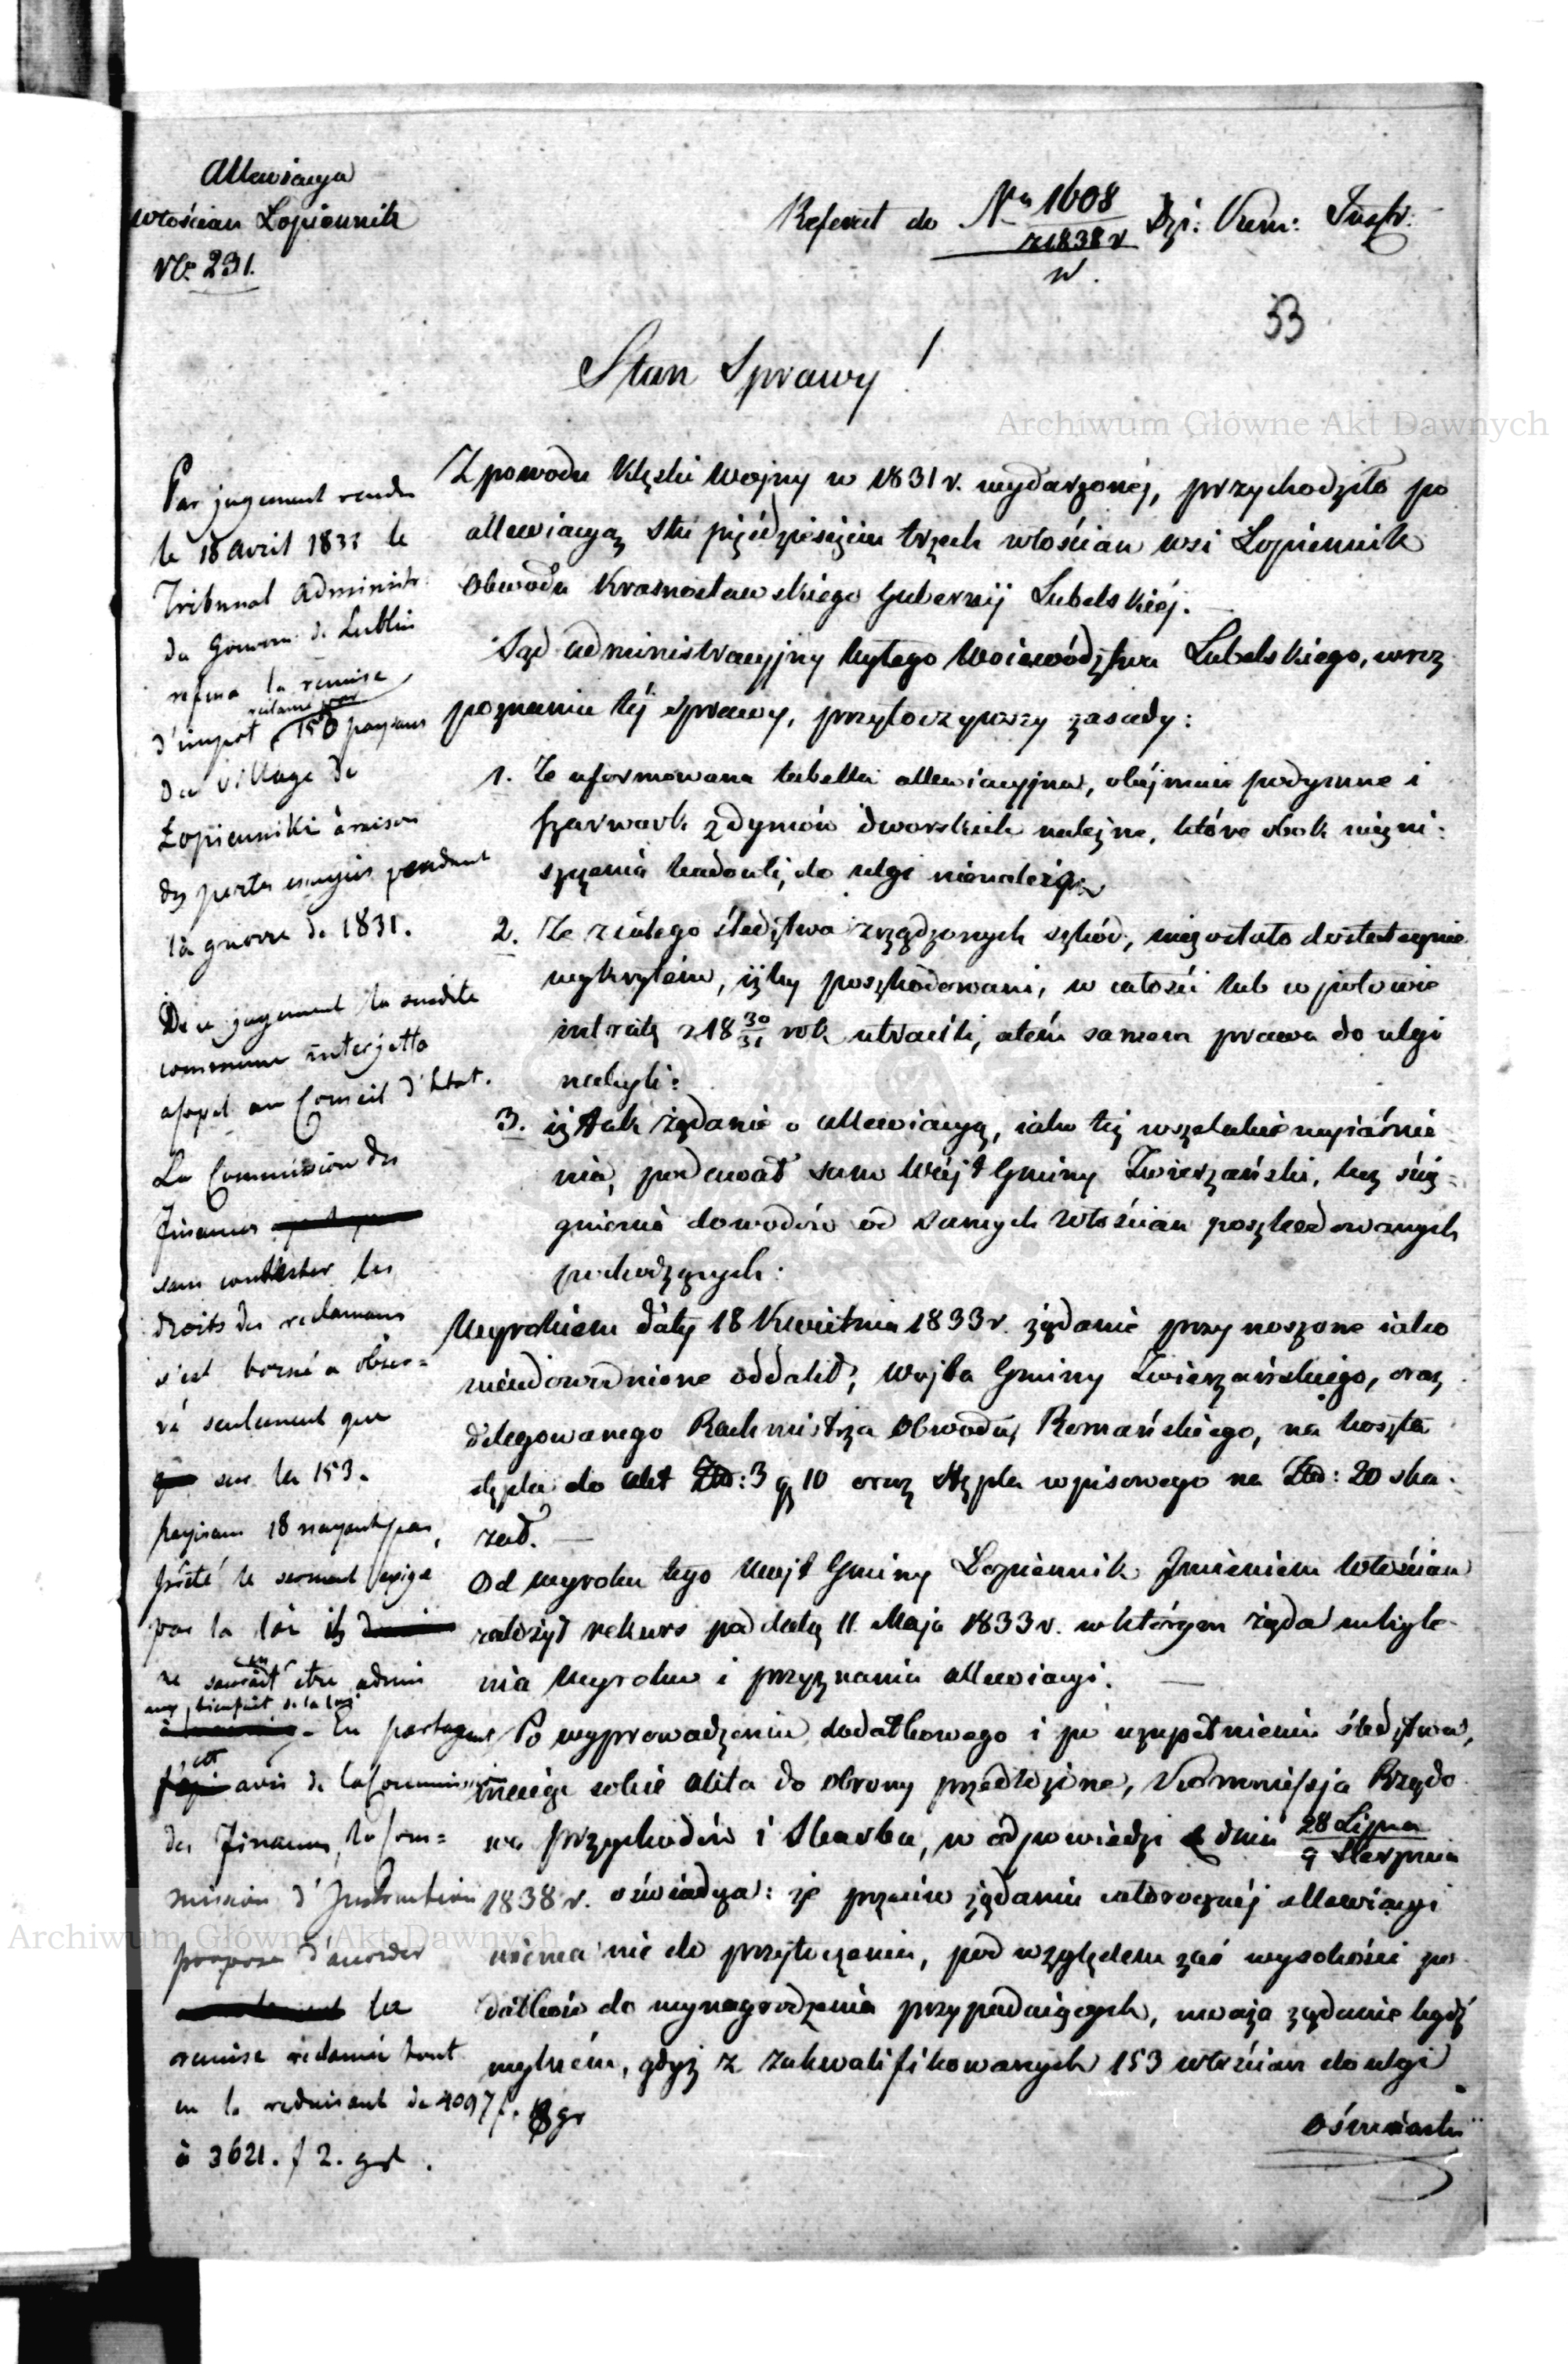 Allewiacya
włościan Łopiennik
No 231.
Referat do Nru 1608 Dzi: Kem: Instr:
z 1838 r
w.
33
Stan Sprawy!
Archiwum Główne Akt Dawnych
Par jugement rendu
le 18 avril 1833 le
Tribunal Administr.
du Gouvern: de Lublin
refusa la remise
reclamé par
d'impot 150 paysans
du village de
Łopienniki à raison
des pertes essuyées pendant
la guerre de 1831.
De ce jugement la susdite
commune interjetta
appel au Conseil d'Etat.
La Commission des
Finances
sans contester les
droits des reclamans
s'est borné a obser=
vé seulement que
sur les 153.
paysans 18 nayant pas
prêté le serment exigé
par la loi ils
ne sauraient être admis
aux bienfait de la loi
. En partageant
cet avis de la Commission
des Finances, la Com=
mission d'Instruction
propose d'accorder
la
remise reclamée tout
en la reduisant de 4097 f. 18 gr
à 3621. f 2. gr.
Z powodu klęski wojny w 1831 r. wydarzonéj, przychodziło po
allewiacyą stu pięćdziesięciu trzech włościan wsi Łopiennik
Obwodu Krasnostawskiego Gubernij Lubelskiéj. —
Sąd administracyjny byłego Woiewództwa Lubelskiego, w roz
poznaniu téj sprawy, przytoczywszy zasady:
1. Że uformowana tabella allewiacyjna, obéjmuie podymne i
szarwark z dymów dworskich należne, które obok niezni=
szczenia budowli, do ulgi nienależą;
2. Że z całego śledztwa zrządzonych szkód, nie zostało dostatecznie
wykrytém, iżby poszkodowani, w całości lub w połowie
intratę z 18 30/31 rok utracili, a tém samem prawa do ulgi
nabyli:
3. iż tak żądanie o allewiacyą, iako też wszelakie wyiaśnie
nia, podawał sam Wójt Gminy Zwierzański, bez ścią=
gnienia dowodów od samych włościan poszkodowanych
pochodzących:
Wyrokiem daty 18 Kwietnia 1833 r. żądanie przynoszone iako
nieudowodnione oddalił, Wójta Gminy Zwierzańskiego, oraz
delegowanego Rachmistrza Obwodu, Romańskiego, na koszta
stępla do akt Złp: 3 g 10 oraz stępla wpisowego na Złp: 20 ska=
zał. —
Od wyroku tego Wójt Gminy Łopiennik Imieniem Włościan
założył rekurs pod datą 11 Maja 1833 r. w którym żąda uchyle=
nia Wyroku i przyznania allewiacyi. —
Po wyprowadzeniu dodatkowego i po uzupełnieniu śledztwa,
maiąc sobie akta do obrony przedłożone, Kommissja Rządo
wa Przychodów i Skarbu, w odpowiedzi z dnia 28 Lipca
9 Sierpnia
1838 r. oświadcza: że przeciw żądaniu całorocznéj allewiacyi
niema nic do przytoczenia, pod względem zaś wysokości po
datków do wynagrodzenia przypadaiących, uważa żądanie bydź
mylném, gdyż z zakwalifikowanych 153 włościan do ulgi
ośmnastu
Archiwum Główne Akt Dawnych